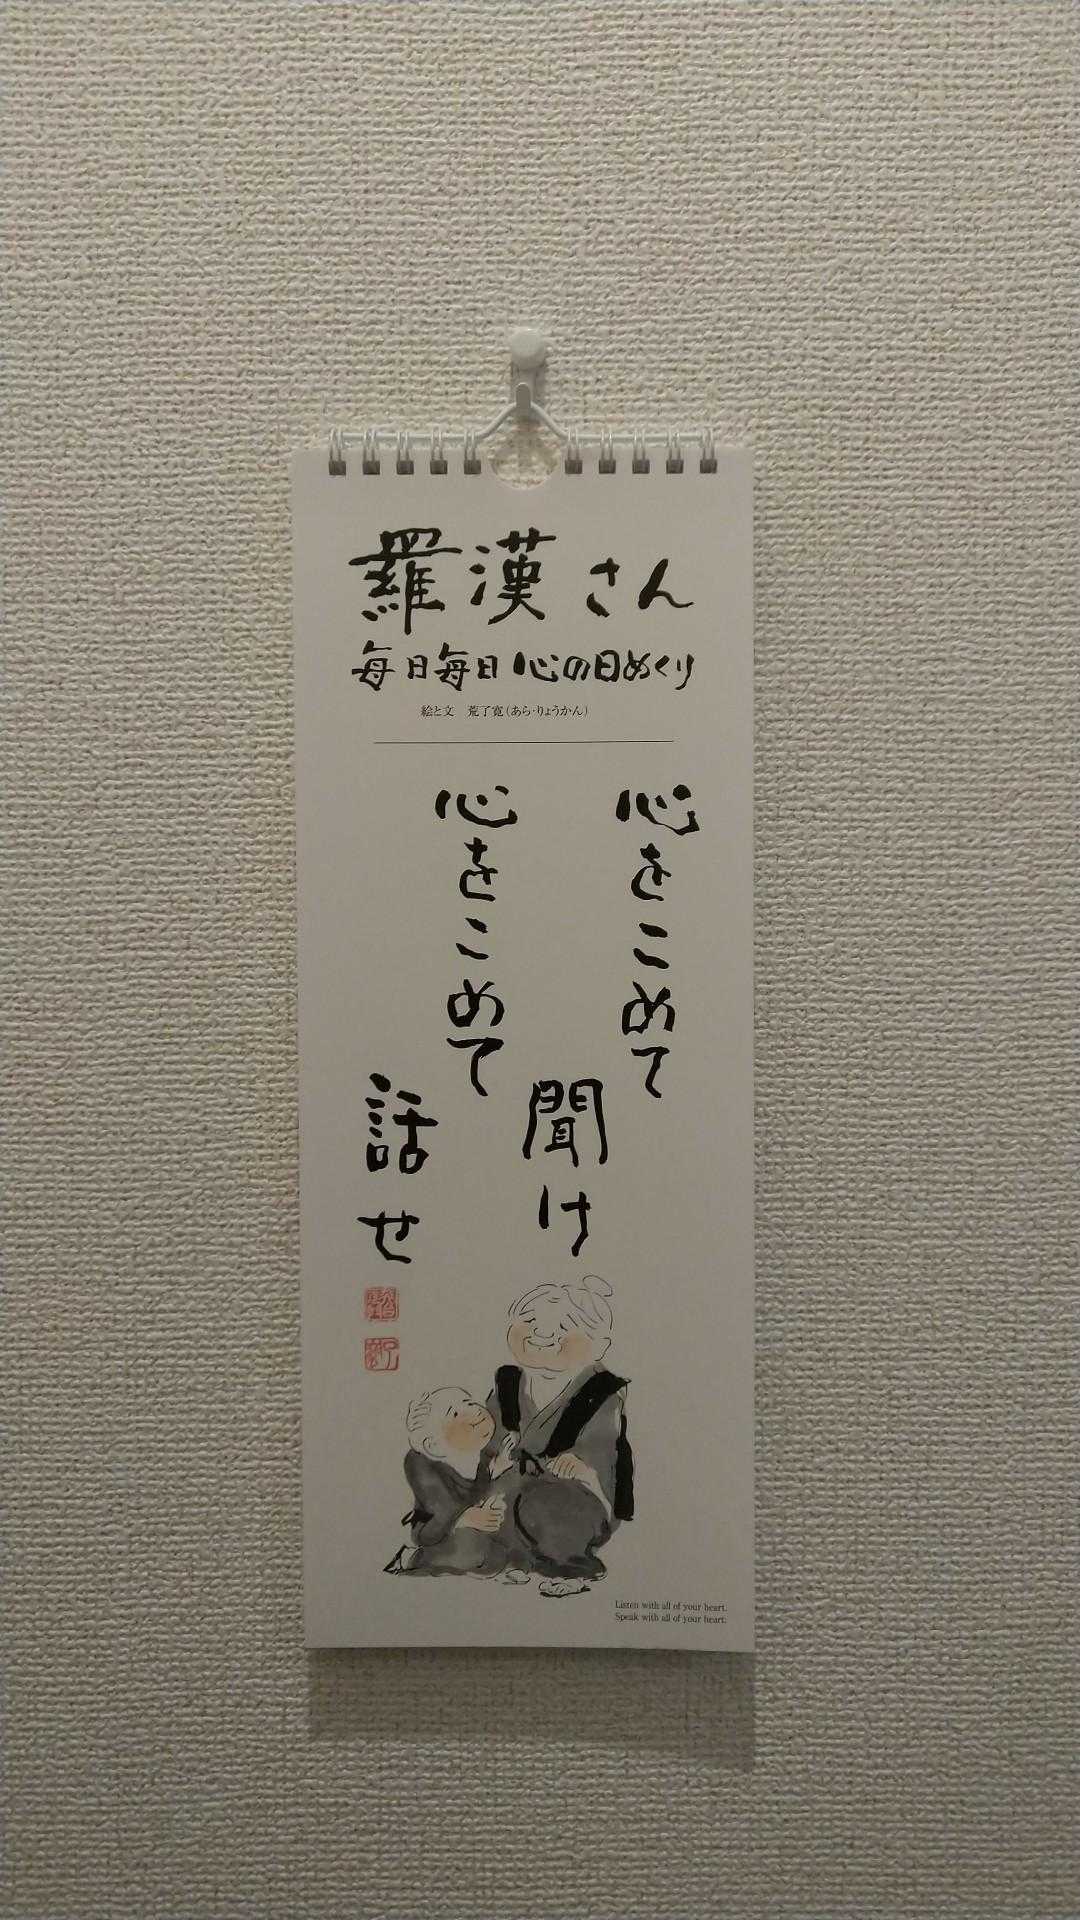 羅漢さん
毎日毎日心の日めくり
絵と文　荒了寛(あら・りょうかん)
心をこめて
聞け
心をこめて
話せ
Listen with all of your heart.
Speak with all of your heart.